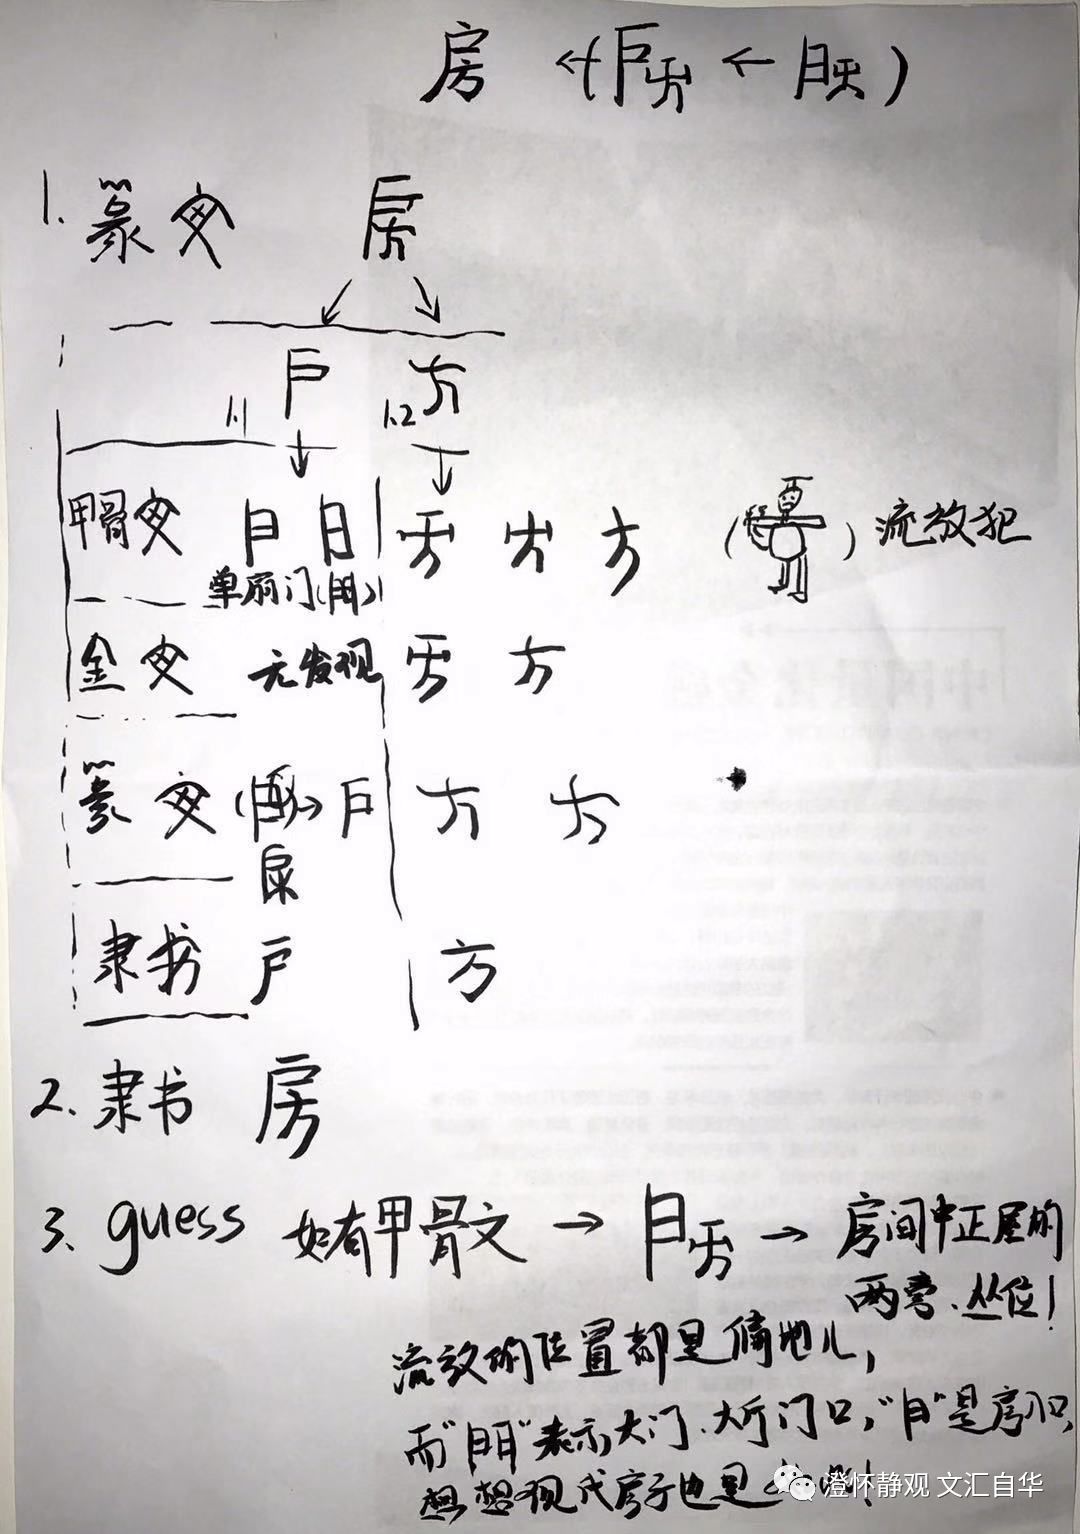 房 ←(房 ← )
1. 篆文 房
户 方
1.1 1.2
甲骨文 方 ( ) 流放犯
单扇门(門)
金文 无发现 方
篆文 户 方 方
隶书 户 方
2. 隶书 房
3. guess 如有甲骨文 → → 房间中正屋的
两旁、丛位!
流放的位置都是偏地儿,
而"門"表示大门、大厅门口,"户"是房门口,
想想现代房子也是
澄怀静观 文汇自华